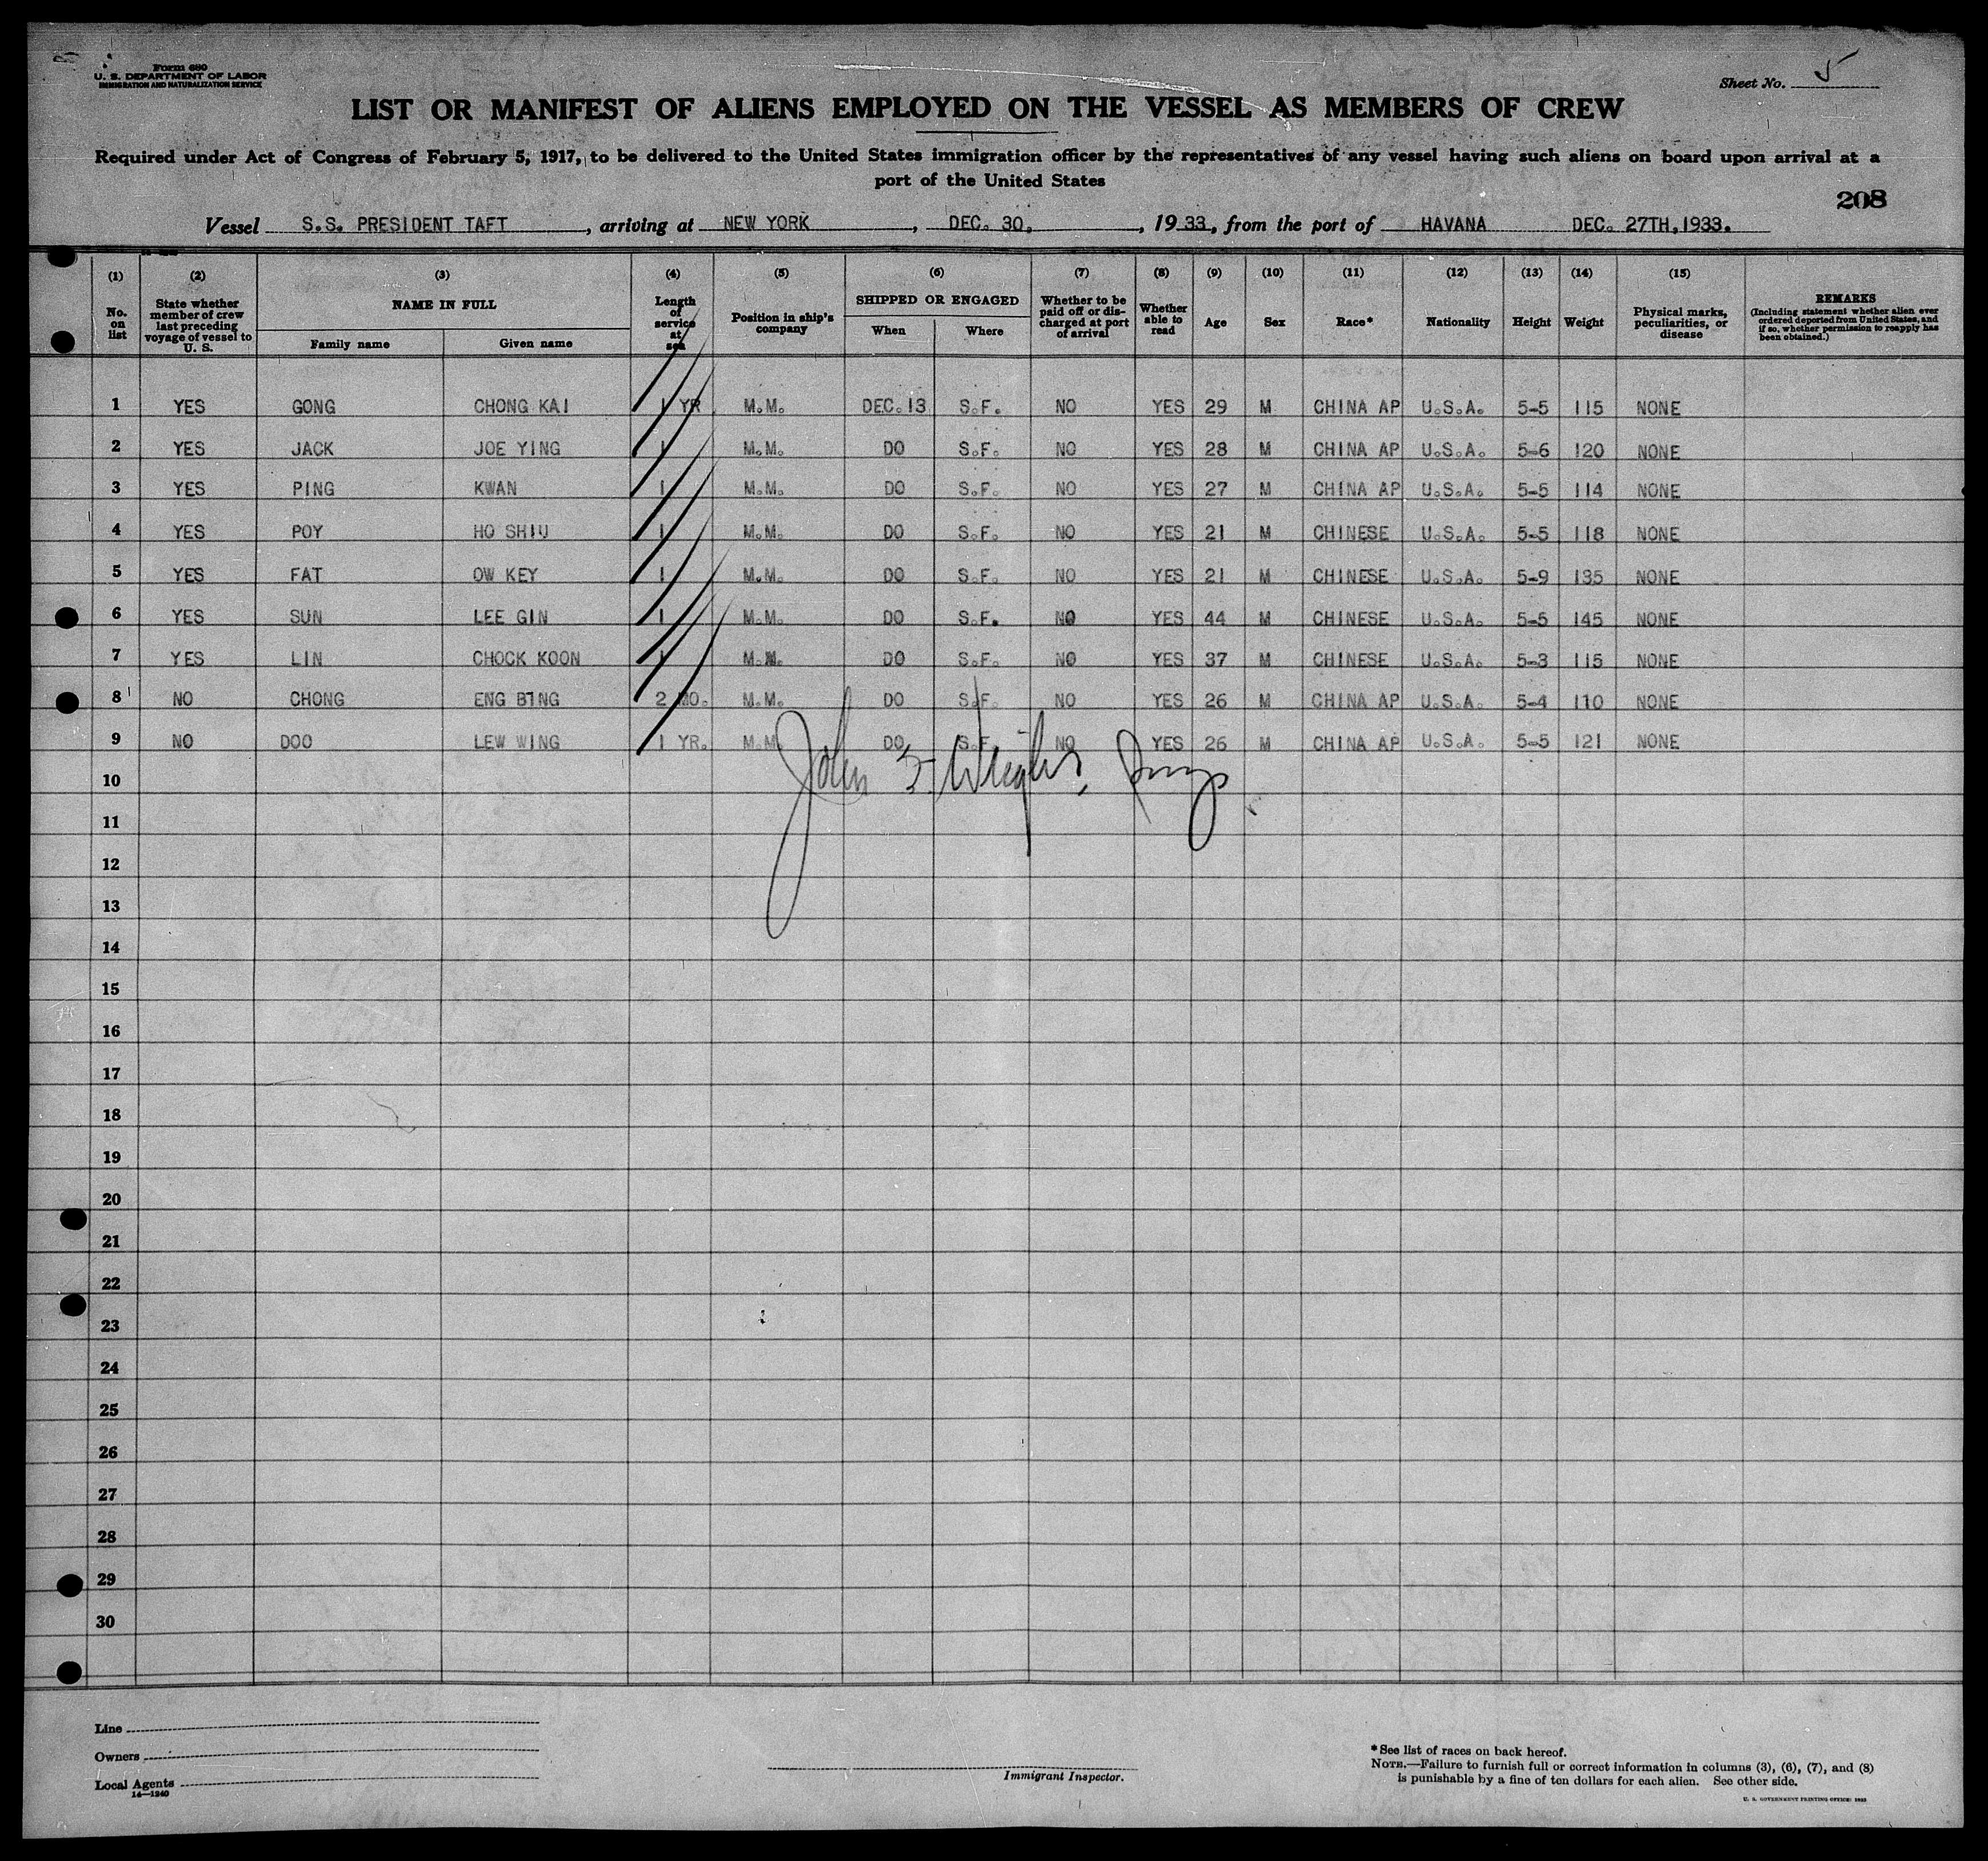 Form 680
U. S. DEPARTMENT OF LABOR
IMMIGRATION AND NATURALIZATION SERVICE
Sheet No. 5
LIST OR MANIFEST OF ALIENS EMPLOYED ON THE VESSEL AS MEMBERS OF CREW
Required under Act of Congress of February 5, 1917, to be delivered to the United States immigration officer by the representatives of any vessel having such aliens on board upon arrival at a
port of the United States
208
Vessel S.S. PRESIDENT TAFT, arriving at NEW YORK, DEC. 30, 1933, from the port of HAVANA DEC. 27TH,1933.
(1) (2) (3) (4) (5) (6) (7) (8) (9) (10) (11) (12) (13) (14) (15)
No. on list State whether member of crew last preceding voyage of vessel to U. S. NAME IN FULL Family name Given name Length of service at sea Position in ship's company SHIPPED OR ENGAGED When Where Whether to be paid off or discharged at port of arrival Whether able to read Age Sex Race* Nationality Height Weight Physical marks, peculiarities, or disease REMARKS (Including statement whether alien ever ordered deported from United States, and if so, whether permission to reapply has been obtained.)
1 YES GONG CHONG KAI 1 YR M.M. DEC.13 S.F. NO YES 29 M CHINA AP U.S.A. 5-5 115 NONE
2 YES JACK JOE YING 1 M.M. DO S.F. NO YES 28 M CHINA AP U.S.A. 5-6 120 NONE
3 YES PING KWAN 1 M.M. DO S.F. NO YES 27 M CHINA AP U.S.A. 5-5 114 NONE
4 YES POY HO SHIU 1 M.M. DO S.F. NO YES 21 M CHINESE U.S.A. 5-5 118 NONE
5 YES FAT OW KEY 1 M.M. DO S.F. NO YES 21 M CHINESE U.S.A. 5-9 135 NONE
6 YES SUN LEE GIN 1 M.M. DO S.F. NO YES 44 M CHINESE U.S.A. 5-5 145 NONE
7 YES LIN CHOCK KOON 1 M.M. DO S.F. NO YES 37 M CHINESE U.S.A. 5-3 115 NONE
8 NO CHONG ENG BING 2 MO. M.M. DO S.F. NO YES 26 M CHINA AP U.S.A. 5-4 110 NONE
9 NO DOO LEW WING 1 YR. M.M. DO S.F. NO YES 26 M CHINA AP U.S.A. 5-5 121 NONE
John F. Wright,
10
11
12
13
14
15
16
17
18
19
20
21
22
23
24
25
26
27
28
29
30
Line
Owners
Local Agents
14—1240
Immigrant Inspector.
*See list of races on back hereof.
NOTE.—Failure to furnish full or correct information in columns (3), (6), (7), and (8)
is punishable by a fine of ten dollars for each alien. See other side.
U. S. GOVERNMENT PRINTING OFFICE: 1933